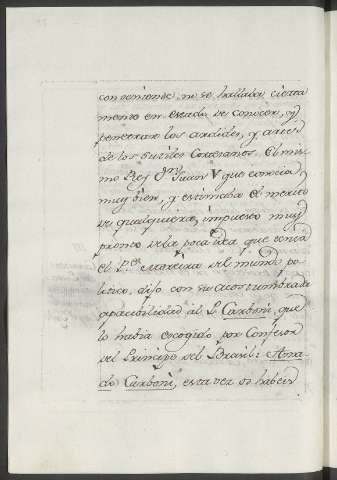 conveniente, ni se hallaba cierta
mente en estado de conocer, y
penetrar los ardides, y artes
de los sutiles Cortesanos. El mis
mo Rey Dn. Juan V que conocia
muy bien, y estimaba el merito
de qualquiera, impuesto muy
presto de la poca idea, que tenia
el Pe. Moreira del mundo po
litico, dijo con su acostumbrada
apacibilidad al P. Carboni, que
lo habia escogido por Confesor
del Principe del Brasil: Ama
do Carboni, esta vez os habeis